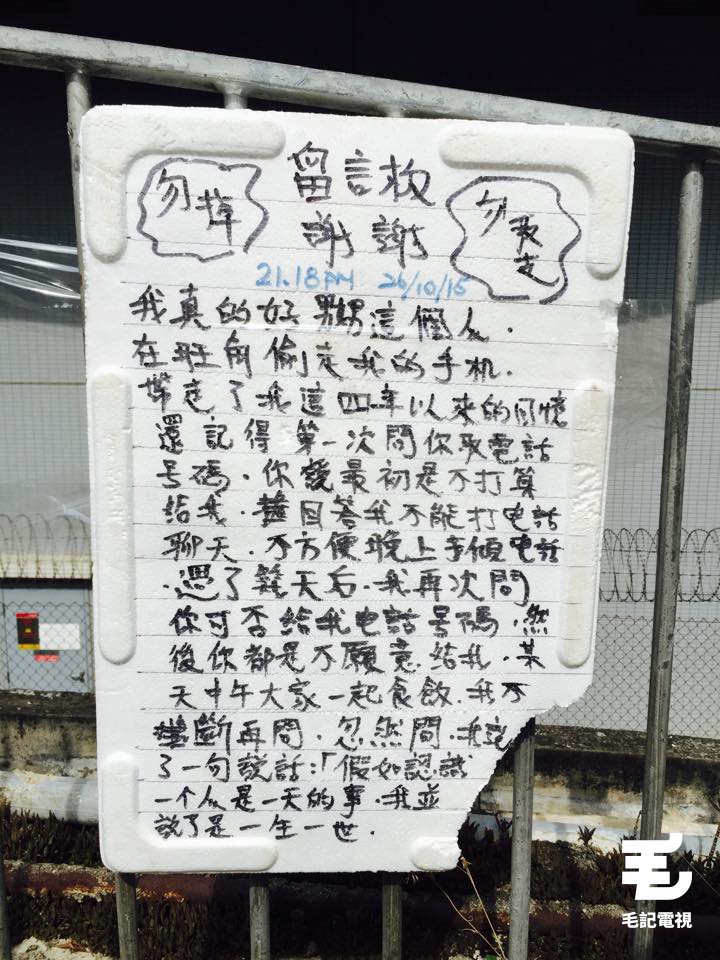 留言救
謝謝
勿掉
勿取走
21.18PM 26/10/15
我真的好嬲這個人.
在旺角偷走我的手机.
帶走了我這四年以來的回憶
還記得第一次問你取電話
号碼.你說最初是不打算
給我.並回答我不能打电話
聊天.不方便晚上手傾電話
.過了幾天后.我再次問
你可否給我电話号碼.然
後你都是不願意給我.某
天中午大家一起食飲.我不
斷再問.忽然間.我說
了一句說話:「假如認識
一个人是一天的事.我並
說了是一生一世.
毛記電視